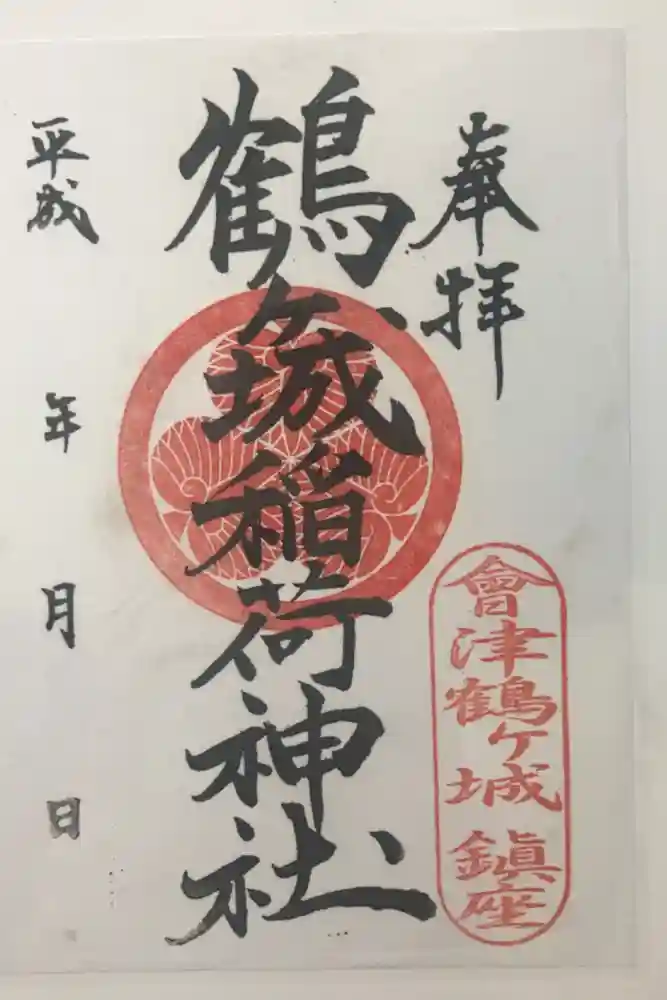 奉拝
鶴ヶ城稲荷神社
會津鶴ヶ城鎮座
平成 年 月 日